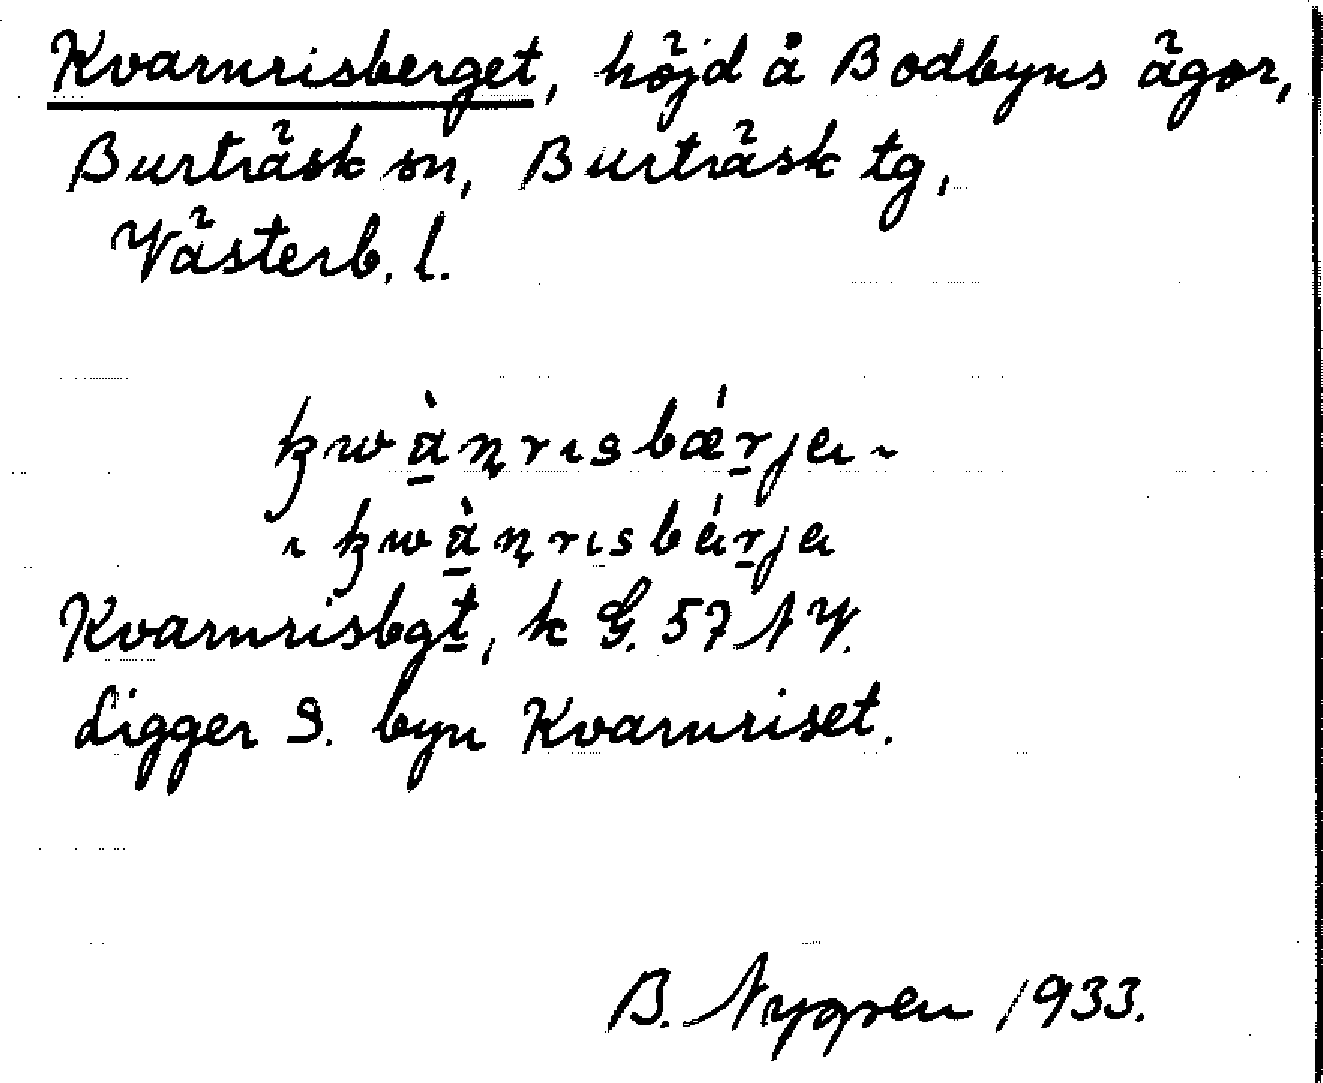 Kvarnrisberget, höjd å Bodbyns ägor,
Burträsk sn, Burträsk tg,
Västerb. l.
kwànrısbǽrje ~
~ kwànrısbérje
Kvarnrisbgt, k G. 57 NV.
Ligger S. byn Kvarnriset.
B. Nygren 1933.